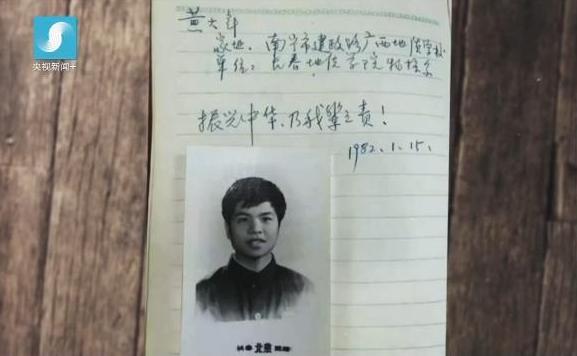 央视新闻+
黄大年
家地:南宁市建政路广西地质学校
单位:长春地质学院物探系
振兴中华,乃我辈之责!
1982.1.15.
长春 北京 照相